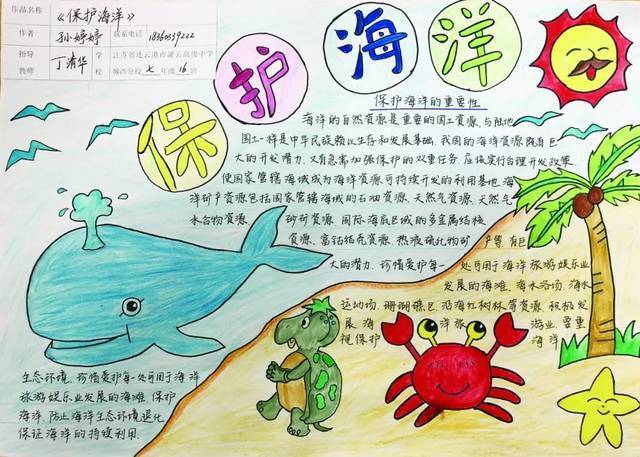 作品名称 《保护海洋》
作者 孙婷婷 联系电话
指导教师 丁清华 学校 江苏省连云港市灌云高级中学
城西分校 七 年级 16 班
保护海洋
保护海洋的重要性
海洋的自然资源是重要的国土资源,与陆地
国土一样是中华民族赖以生存和发展基础.我国的海洋资源既有巨
大的开发潜力.又有急需加强保护的双重任务.应该实行合理开发政策.
使国家管辖海域成为海洋资源可持续开发的利用基地.海
洋矿产资源包括国家管辖海域的石油资源.天然气资源.天然气
水合物资源. 砂矿资源.国际海底区域的多金属结核
资源、富钴结壳资源.热液硫化物矿 产等.有巨
大的潜力.珍惜爱护每一 处可用于海洋旅游娱乐业
发展的海滩、海水浴场、海水
运动场.珊瑚礁区.沿海红树林等资源.积极发
展海 洋旅 游业.要重
视保护 海洋
生态环境.珍惜爱护每一处可用于海洋
旅游娱乐业发展的海滩.保护
海洋.防止海洋生态环境退化
保证海洋的持续利用.